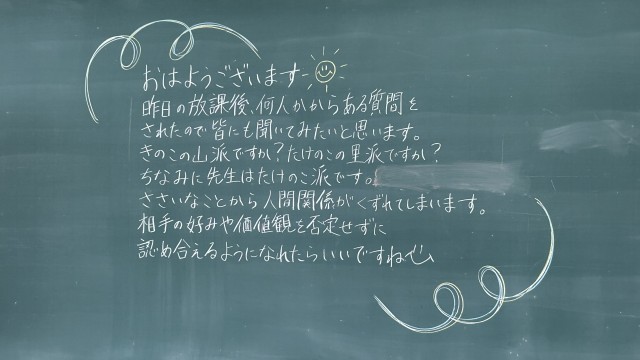 おはようございます
昨日の放課後、何人かからある質問を
されたので皆にも聞いてみたいと思います。
きのこの山派ですか？たけのこの里派ですか？
ちなみに先生はたけのこ派です。
ささいなことから人間関係がくずれてしまいます。
相手の好みや価値観を否定せずに
認め合えるようになれたらいいですね